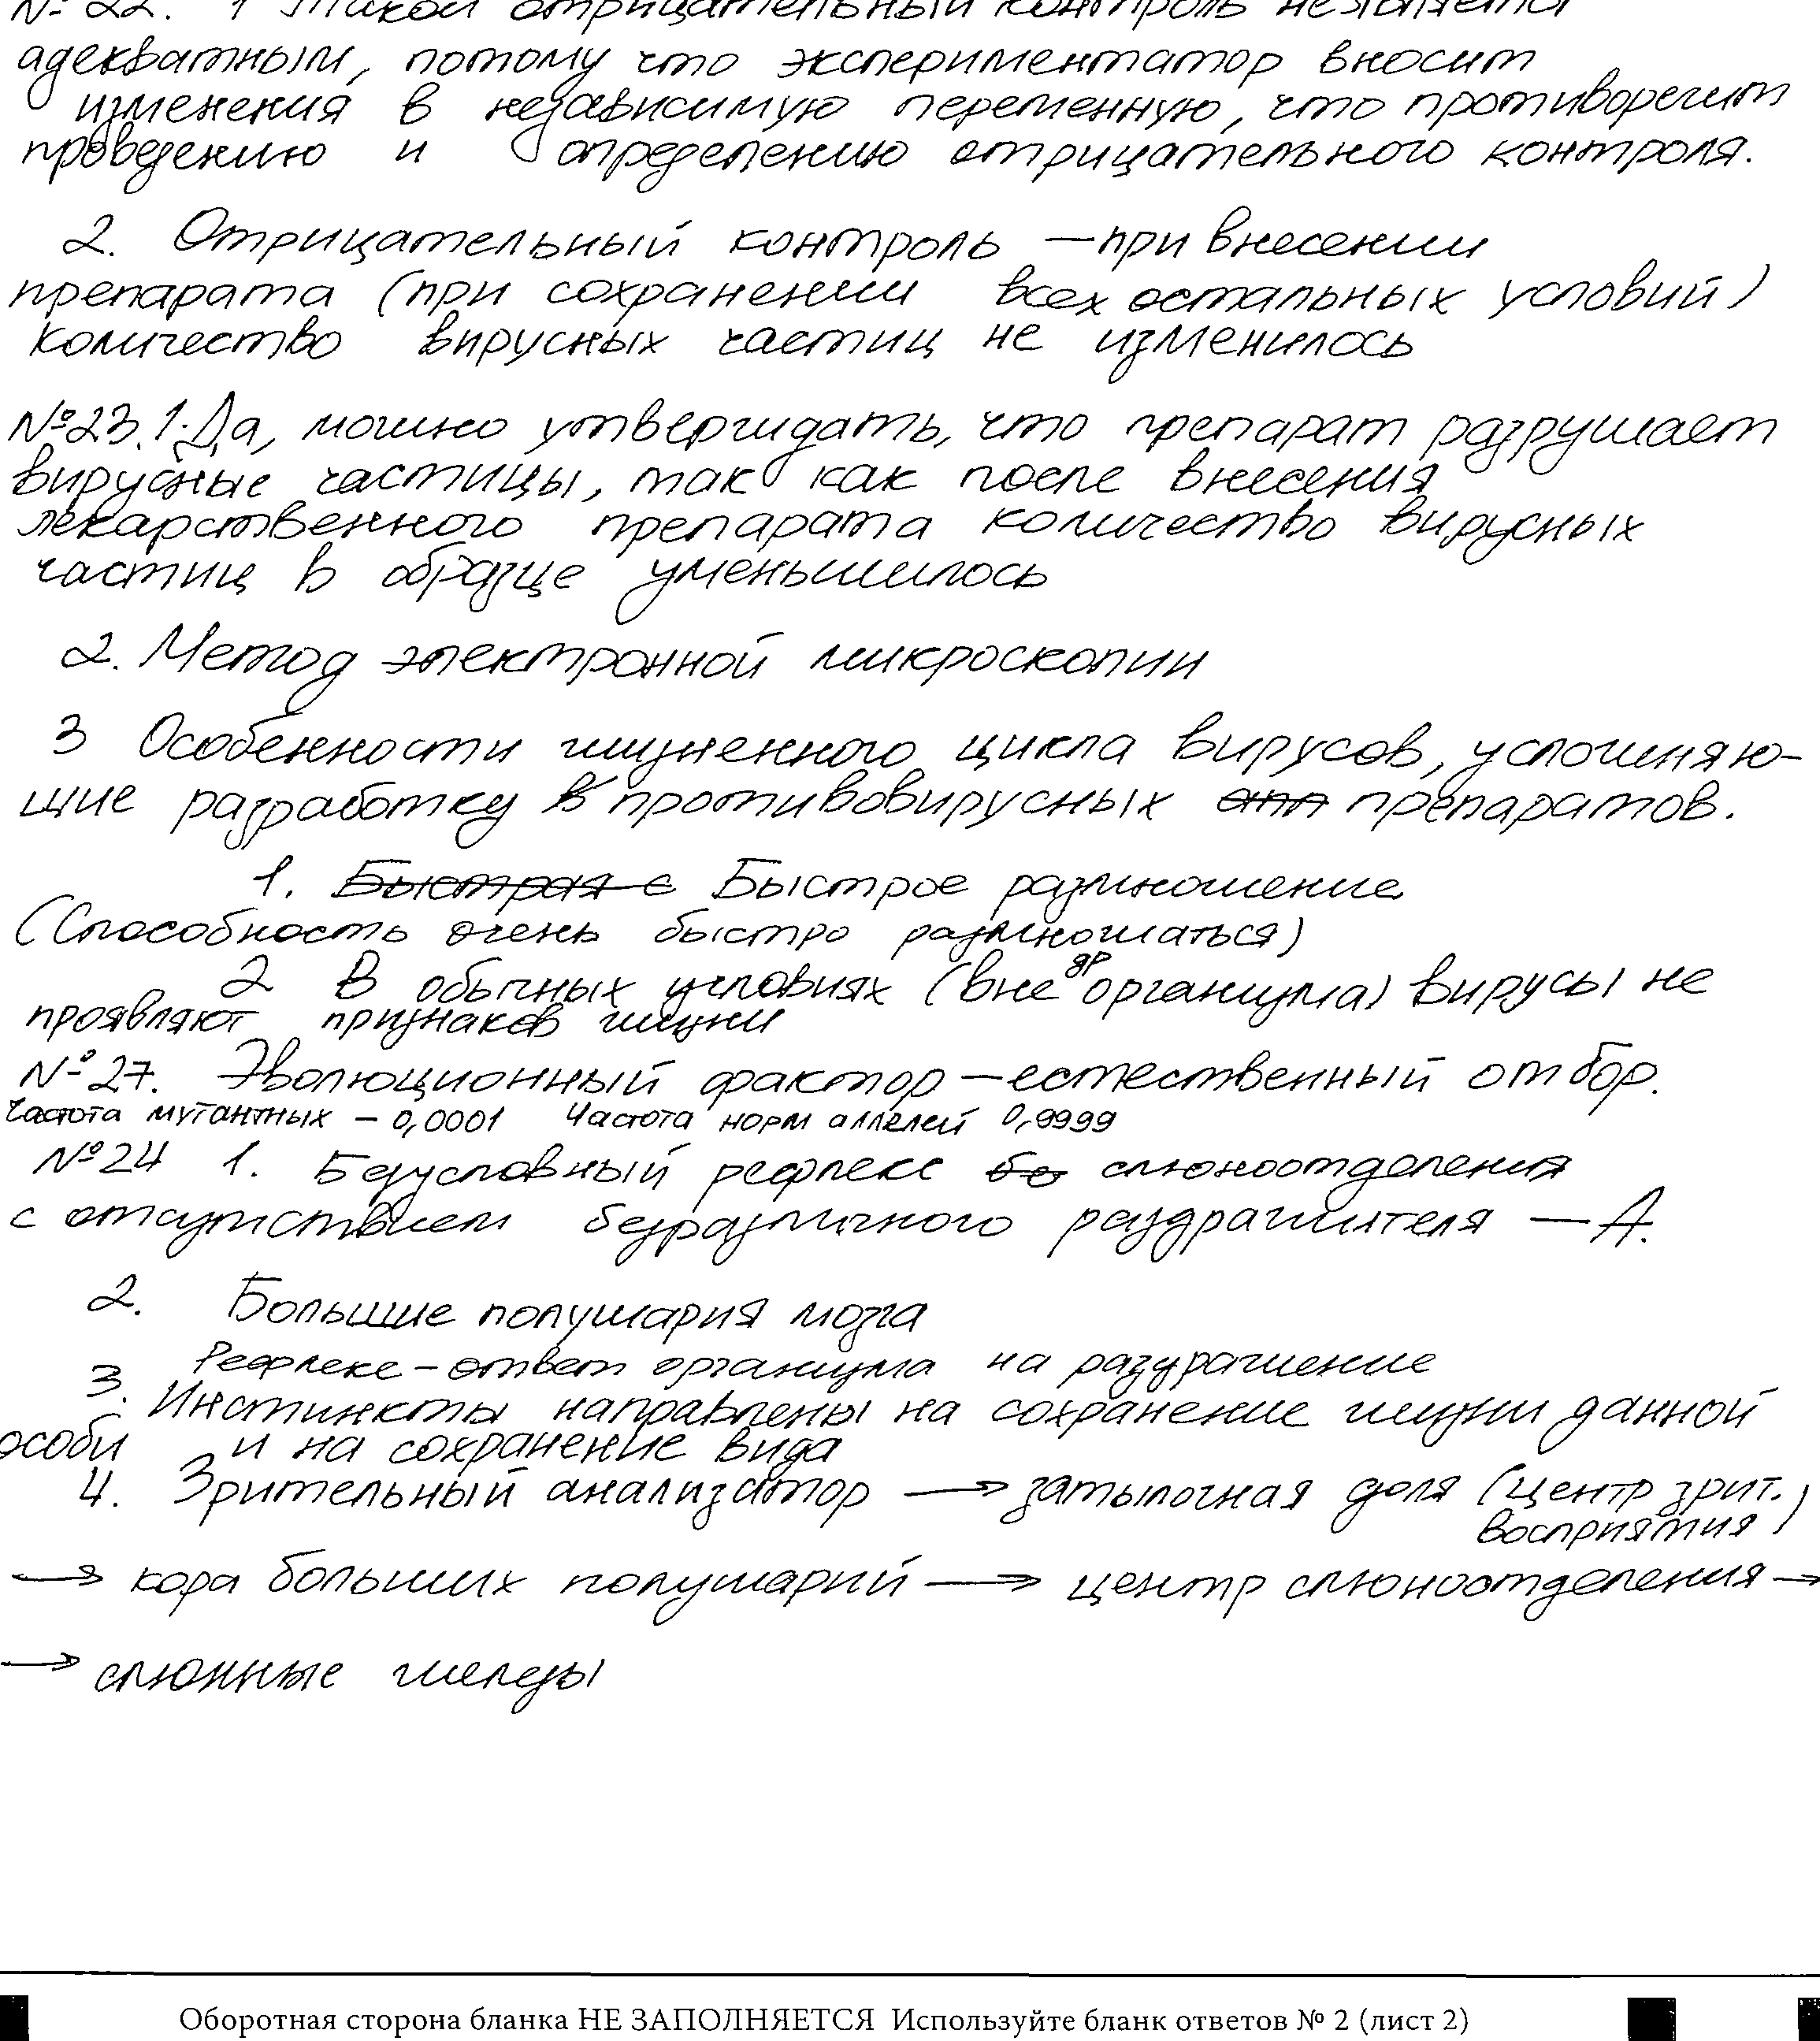 № 22. 1 Такой отрицательный контроль не является
адекватным, потому что экспериментатор вносит
изменения в независимую переменную, что противоречит
проведению и определению отрицательного контроля.
2. Отрицательный контроль — при внесении
препарата (при сохранении всех остальных условий)
количество вирусных частиц не изменилось
№23. 1. Да, можно утверждать, что препарат разрушает
вирусные частицы, так как после внесения
лекарственного препарата количество вирусных
частиц в образце уменьшилось
2. Метод электронной микроскопии
3 Особенности жизненного цикла вирусов, усложняю-
щие разработку в противовирусных апп препаратов.
1. Быстрая с Быстрое размножение
(Способность очень быстро размножаться)
2 В обычных условиях (вне др организма) вирусы не
проявляют признаков жизни
№ 27. Эволюционный фактор — естественный отбор.
Частота мутантных – 0,0001 Частота норм аллелей 0,9999
№ 24 1. Безусловный рефлекс бе слюноотделения
с отсутствием безразличного раздражителя — А.
2. Большие полушария мозга
Рефлекс – ответ организма на раздражение
3. Инстинкты направлены на сохранение жизни данной
особи и на сохранение вида
4. Зрительный анализатор → затылочная доля (центр зрит.
восприятия)
→ кора больших полушарий → центр слюноотделения →
→ слюнные железы
Оборотная сторона бланка НЕ ЗАПОЛНЯЕТСЯ Используйте бланк ответов № 2 (лист 2)